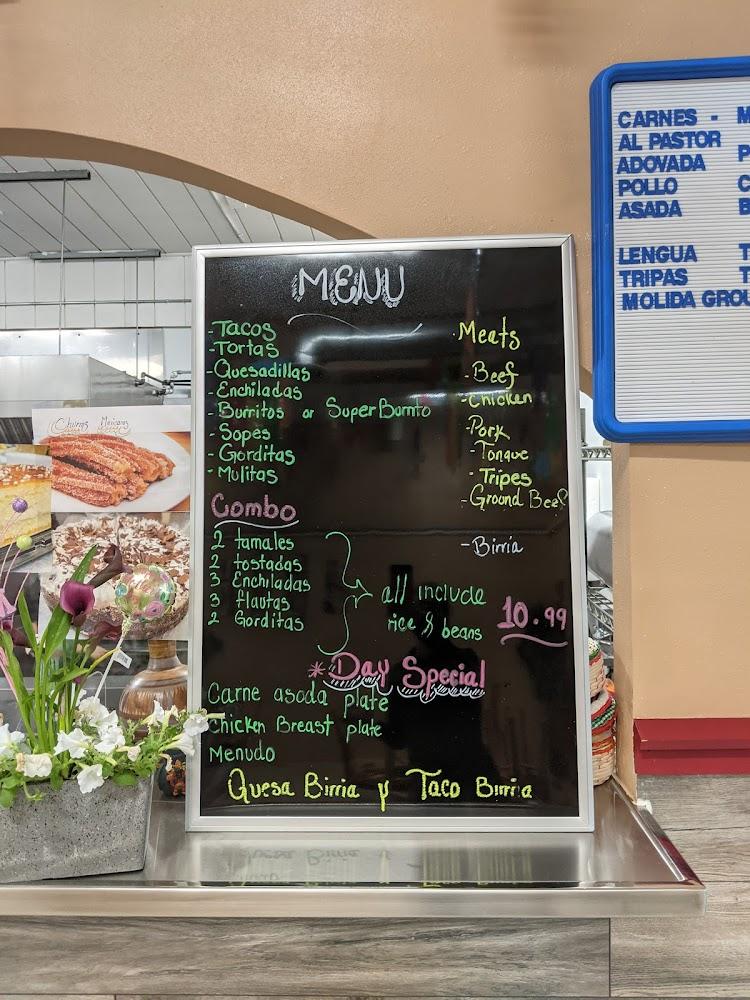 MENU
- Tacos
- Tortas
- Quesadillas
- Enchiladas
- Burritos or Super Burrito
- Sopes
- Gorditas
- Mulitas
Meats
- Beef
- Chicken
- Pork
- Tongue
- Tripes
- Ground Beef
- Birria
Combo
2 tamales
2 tostadas
3 Enchiladas
3 flautas
2 Gorditas
all include
rice & beans
10.99
* Day Special
Carne asada plate
Chicken Breast plate
Menudo
Quesa Birria y Taco Birria
CARNES - M
AL PASTOR
ADOVADA P
POLLO C
ASADA B
LENGUA T
TRIPAS T
MOLIDA GROU
Churros Mexicanos